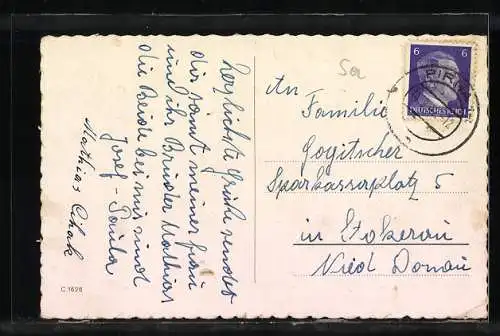 Herzlichste Grüße sendet
dir samt meiner frau
und ihr Bruder Mathias
die Beide bei mir sind
Josef - Paula
Mathias Cihak
C. 1626
5er
6 6
DEUTSCHES REICH
An
Familie
Gogitscher
Sparkassaplatz 5
in Stokerau
Nied Donau